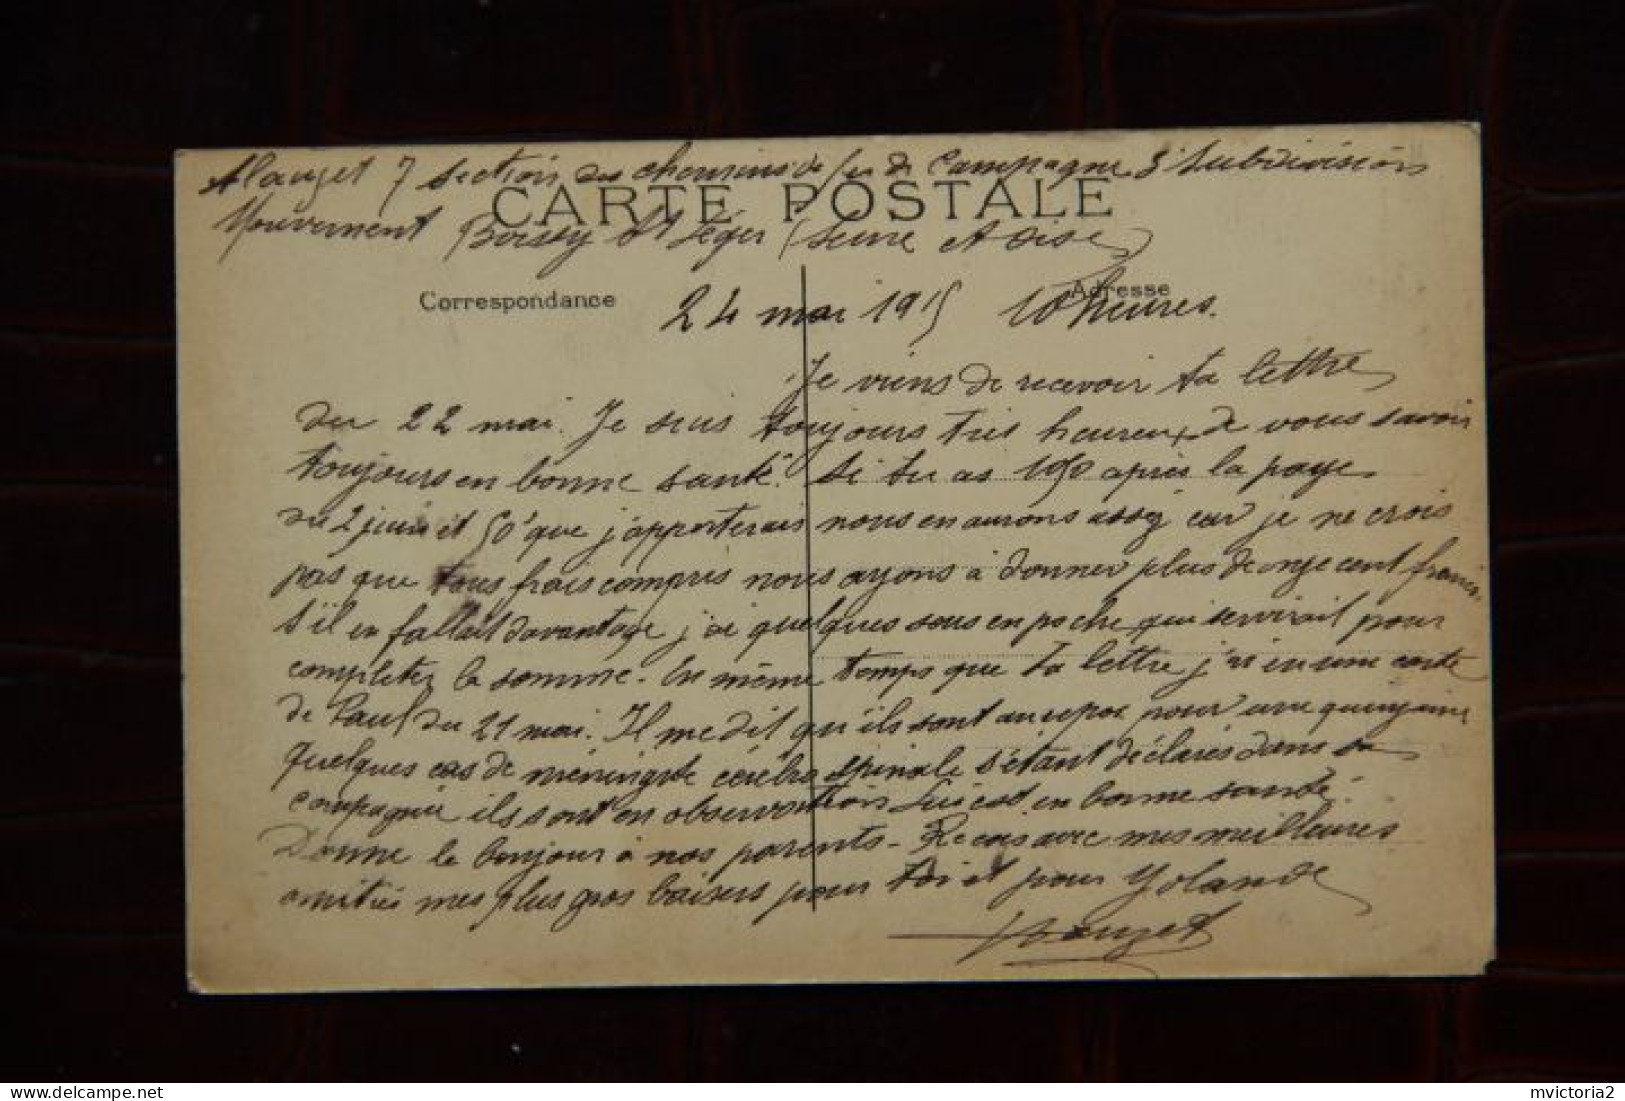 Alauzet 7 section des chemins de fer de Campagne 3e Subdivision
CARTE POSTALE
Mouvement Boissy St Léger (Seine et Oise)
Correspondance
Adresse
24 mai 1915 10 heures.
Je viens de recevoir ta lettre
du 22 mai. Je suis toujours très heureux de vous savoir
toujours en bonne santé. Si tu as 1050 après la paye
du 2 juin et 50f que j'apporterais nous en aurons assez car je ne crois
pas que tous frais compris nous ayons à donner plus de onze cent francs.
S'il en fallait davantage j'ai quelques sous en poche qui servirait pour
completer la somme. En même temps que ta lettre j'ai eu une carte
de Paul du 21 mai. Il me dit qu'ils sont au repos pour une quinzaine
quelques cas de méningite cérébro spinale s'étant déclarés dans sa
compagnie ils sont en observation Lui est en bonne santé.
Donne le bonjour à nos parents. Reçois avec mes meilleures
amitiés mes plus gros baisers pour toi et pour Yolande
Alauzet
mvictoria2